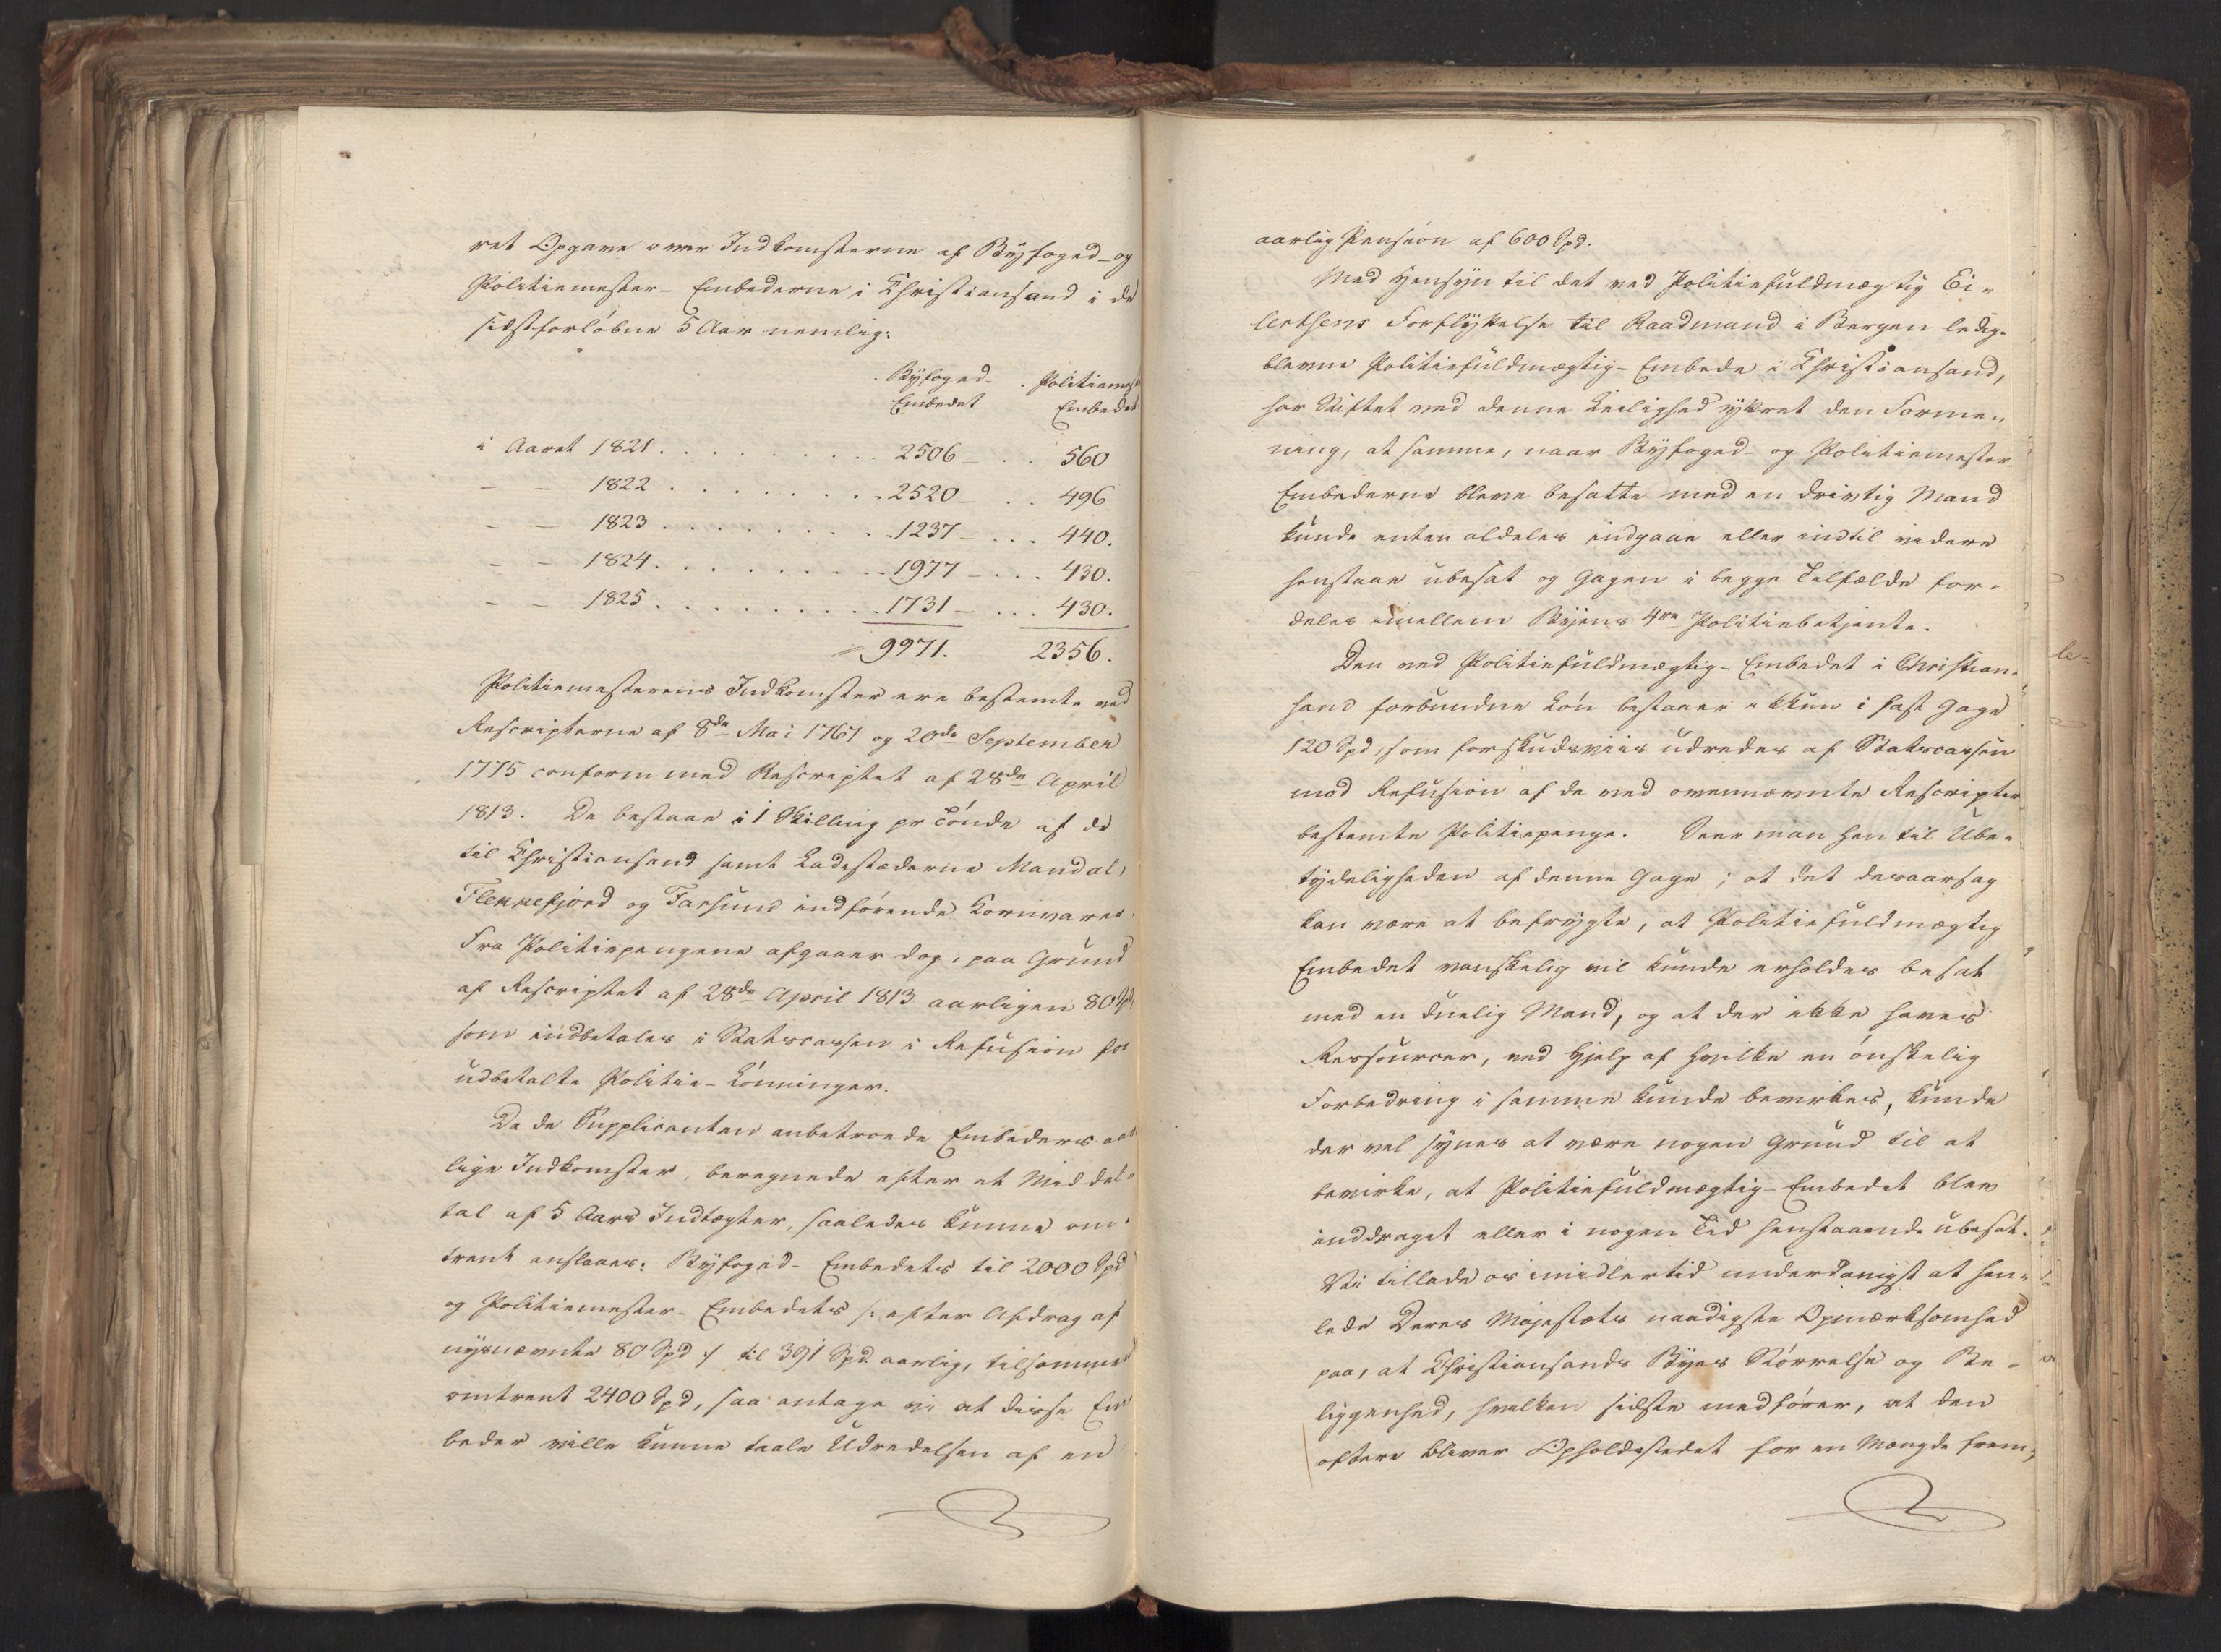 ret Opgave over Indkomsterne af Byfoged- og
Politiemester- Embederne i Christiansand i de
sidstforløbne 5 Aar nemlig:
Byfoged- Politiemest
Embedet Embedet
i Aaret 1821 . . . . . . . . . 2506 — . . 560
— — 1822 . . . . . . . . . 2520 — . 496
— — 1823 . . . . . . . . . 1237 — . . . 440.
— — 1824 . . . . . . . . . 1977 — . . . 430.
— — 1825 . . . . . . . . . 1731 — . . . 430.
9971. 2356.
Politiemesterens Indkomster ere bestemte ved
Rescripterne af 8de Mai 1767 og 20de September
1775 conform med Rescriptet af 28de April
1813. De bestaae i 1 Skilling pr Tønde af de
til Christiansand samt Ladestæderne Mandal,
Flekkefjord og Farsund indførende Kornvarer.
Fra Politiepengene afgaaer dog, paa Grund
af Rescriptet af 28de April 1813 aarligen 80 Spd
som indbetales i Statscassen i Refusion for
udbetalte Politie-Lønninger.
Da de Supplicanten anbetroede Embeders aar
lige Indkomster, beregnede efter et Middel-
tal af 5 Aars Indtægter, saaledes kunne om-
trent anslaaes: Byfoged- Embedets til 2000 Spd
og Politiemester- Embedets /: efter Afdrag af
nysnævnte 80 Spd :/ til 391 Spd aarlig, tilsammen
omtrent 2400 Spd, saa antage vi at disse Em
beder ville kunne taale Udredelsen af en
aarlig Pension af 600 Spd.
Med Hensyn til det ved Politiefuldmægtig Ei-
lertsens Forflyttelse til Raadmand i Bergen ledig-
blevne Politiefuldmægtig- Embede i Christiansand,
har Stiftet ved denne Leilighed yttret den Forme-
ning, at samme, naar Byfoged- og Politiemester
Embederne bleve besatte med en drivtig Mand
kunde enten aldeles indgaae eller indtil videre
henstaae ubesat og Gagen i begge Tilfælde for-
deles imellem Byens 4re Politiebetjente.
Den ved Politiefuldmægtig- Embedet i Christian-
sand forbundne Løn bestaaer ikkun i fast Gage
120 Spd, som forskudsviis udredes af Statscassen
mod Refusion af de ved ovennævnte Rescripter
bestemte Politiepenge. Seer man hen til Ube-
tydeligheden af denne Gage; at det desaarsag
kan være at befrygte, at Politiefuldmægtig
Embedet vanskelig vil kunde erholdes besat
med en duelig Mand, og at der ikke haves
Ressourcer, ved Hjelp af hvilke en ønskelig
Forbedring i samme kunde bevirkes, kunde
der vel synes at være nogen Grund til at
bevirke, at Politiefuldmægtig- Embedet blev
inddraget eller i nogen Tid henstaaende ubesat.
Vi tillade os imidlertid underdanigst at hen-
lede Deres Majestæts naadigste Opmærksomhed
paa, at Christiansands Byes Størrelse og Be-
liggenhed, hvilken sidste medfører, at den
oftere bliver Opholdsstedet for en Mængde frem-